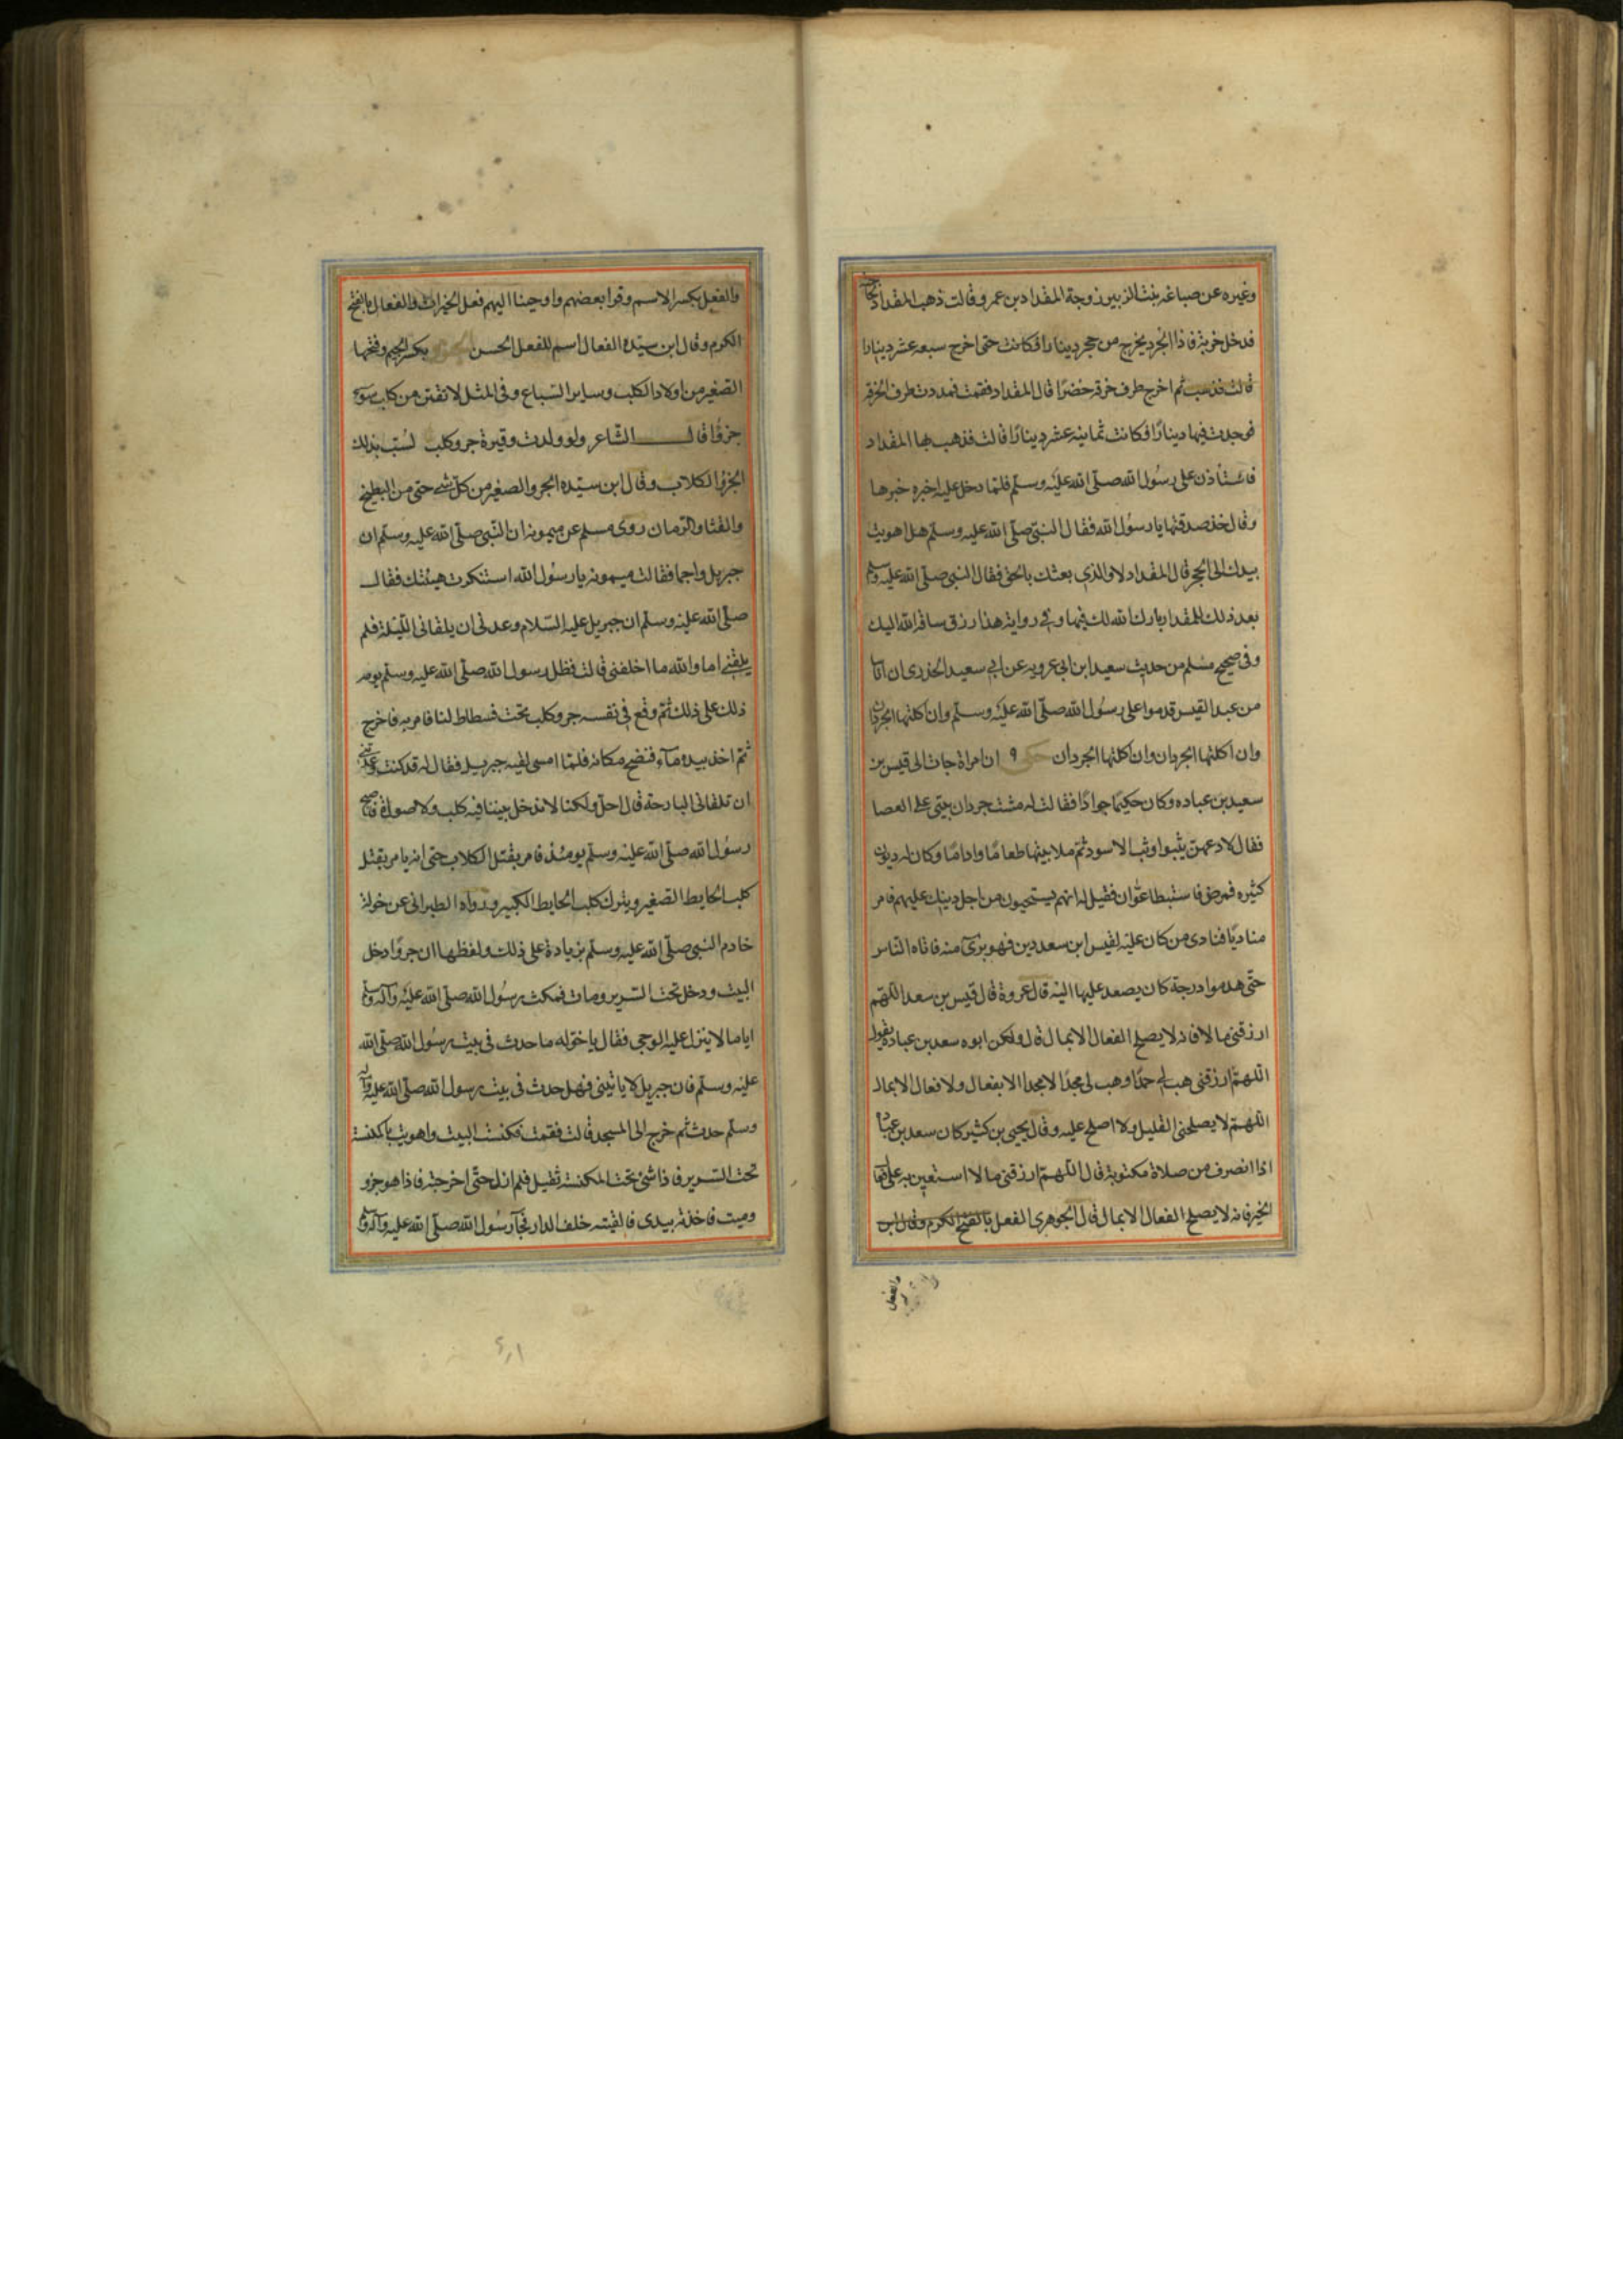 وغيره عن ضباعه بنت الزبير زوجة المقداد بن عمرو قالت ذهب المقداد لحاجته
فدخل خربة فاذا الجرد يخرج من حجر دينارا فكانت حتى اخرج سبعه عشر دينارا
قالت فذهب ثم اخرج طرف خرقه خضرا قال المقداد فقمت فمددت طرف الخرقه
فوجدت فيها دينارًا فكانت ثمانيه عشر دينارًا قالت فذهب بها المقداد
فاستأذن على رسُول الله صلّى الله عليْه وسلّم فلمّا دخل عليه اخبره خبرها
وقال خذ صدقتها يا رسُول الله فقال النبيّ صلّى الله عليه وسلّم هل اهويت
بيدك الى الحجر قال المقداد لا والذي بعثك بالحق فقال النبي صلّى الله عليه وسلم
بعد ذلك للمقداد بارك الله لك فيها وفي رواية هذا رزق ساقه الله اليك
وفي صحيح مسلم من حديث سعيد ابن ابى عروبه عن ابي سعيد الخدرى ان اناسا
من عبد القيس قدموا على رسُول الله صلّى الله عليْه وسلّم وان اكلتها الجردان
وان اكلتها الجردان وان اكلتها الجردان ان امراة جات الى قيس بن
سعيد بن عباده وكان حكيمًا جوادًا فقالت له مشت جردان بيتي على العصا
فقال لادعهن يثبوا وثب الاسود ثمّ ملا بيتها طعامًا واداما وكان له ديون
كثيره فمرض فاستبطا عوّان فقيل له انهم يستحيون من اجل دينك عليهم فامر
مناديًا فنادى من كان عليْه لقيس ابن سعد دين فهو برئ منه فاتاه الناس
حتّى هدموا درجة كان يصعد عليها اليْه قال عروة قال قيس بن سعد اللهمّ
ارزقني مالا فانه لا يصلح الفعال الا بمال قال ولكن ابوه سعد بن عباده يقول
اللهمّ ارزقنى هب لي حمدًا وهب لى مجدًا لا مجدا الا بفعال ولا فعال الا بمال
اللهمّ لا يصلحنى القليل ولا اصلح عليه وقال يحيى بن كثير كان سعد بن عباد
اذا انصرف من صلاة مكتوبة قال اللهمّ ارزقنى مالا استعين به على
الخير فانه لا يصلح الفعال الا بمال قال الجوهرى الفعل بالفتح الكرم وقال ابن
والفعل
والفعل بكسر الاسم وقرا بعضهم واوحينا اليهم فعل الخيرات والفعال بالفتح
الكرم وقال ابن سيّده الفعال اسم للفعل الحسن بكسر الجيم وفتحها
الصّغير من اولاد الكلب وساير السّباع وفي المثل لا تقتن من كلب سوء
جروًا قال الشّاعر ولو ولدت وقيرة جرو كلب لسُبّ بذلك
الجرو الكلاب وقال ابن سيّده الجرو الصغير من كلّ شي حتى من البطيخ
والقثا والرّمان روى مسلم عن ميمونه ان النّبى صلّى الله عليه وسلّم ان
جبريل واجما فقالت ميمونه يا رسُول الله استنكرت هيئتك فقال
صلّى الله عليْه وسلّم ان جبريل عليه السّلام وعدنى ان يلقانى اللّيلة فلم
يلقني اما والله ما اخلفنى قالت فظل رسول الله صلّى الله عليْه وسلّم يومه
ذلك على ذلك ثمّ وقع في نفسه جرو كلب تحت فسطاط لنا فامر به فاخرج
ثمّ اخذ بيده مآء فنضح مكانه فلمّا امسى لقيه جبريل فقال له قد كنت وعدتنى
ان تلقانى البارحة قال اجل ولكنا لا ندخل بيتا فيه كلب ولا صورة فاصبح
رسُول الله صلّى الله عليْه وسلّم يومئذ فامر بقتل الكلاب حتى انه يامر بقتل
كلب الحايط الصّغير ويترك كلب الحايط الكبير ورواه الطبرانى عن خولة
خادم النبى صلّى الله عليه وسلّم بزيادة على ذلك ولفظها ان جروًا دخل
البيت ودخل تحت السّرير ومات فمكث رسُول الله صلّى الله عليْه وآله وسلم
اياما لا ينزل عليه الوحى فقال يا خوله ما حدث فى بيت رسُول الله صلّى الله
عليْه وسلّم فان جبريل لا ياتينى فهل حدث فى بيت رسول الله صلّى الله عليه وآله
وسلّم حدث ثم خرج الى المسجد قالت فقمت فكنست البيت واهويت بالمكنسة
تحت السّرير فاذا شئ تحت المكنسة ثقيل فلم ازل حتّى اخرجته فاذا هو جرو
وميت فاخذته بيدى فالقيته خلف الدار فجآ رسُول الله صلّى الله عليه وآله وسلم